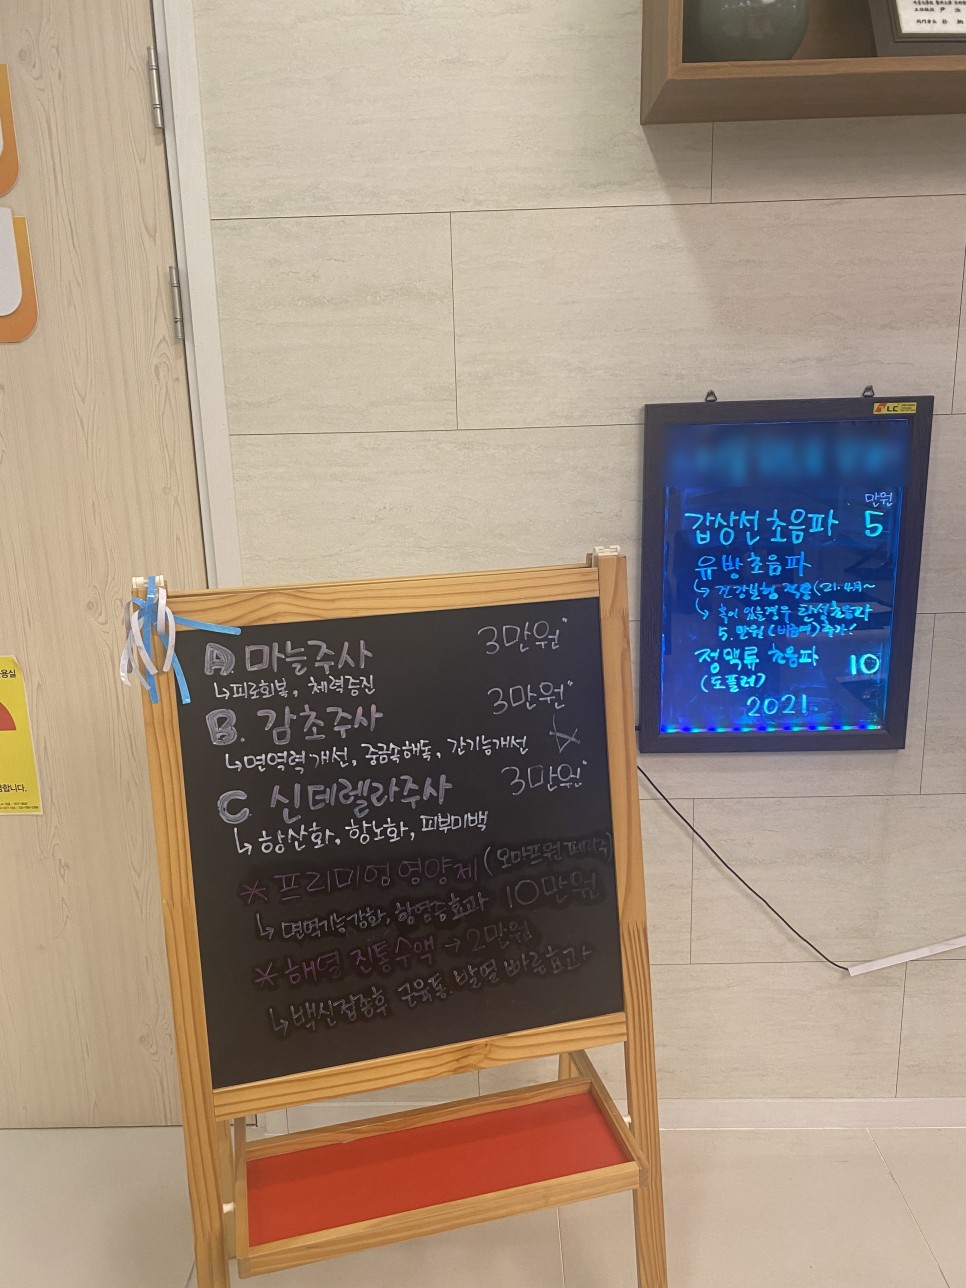 A. 마늘주사 3만원
↳피로회복, 체력증진
B. 감초주사 3만원
↳면역력개선, 중금속해독, 간기능개선
C. 신데렐라주사 3만원
↳항산화, 항노화, 피부미백
* 프리미엄영양제 (오마프원페리주)
↳면역기능강화, 항염증효과 10만원
* 해열진통수액 → 2만원
↳백신접종후 근육통, 발열 빠른효과
LC
만원
갑상선초음파 5
유방초음파
↳건강보험적용(21.4月~
↳혹이 있을경우 탄성초음파
5만원(비급여)추가!
정맥류 초음파 10
(도플러)
2021.
용실
합니다.